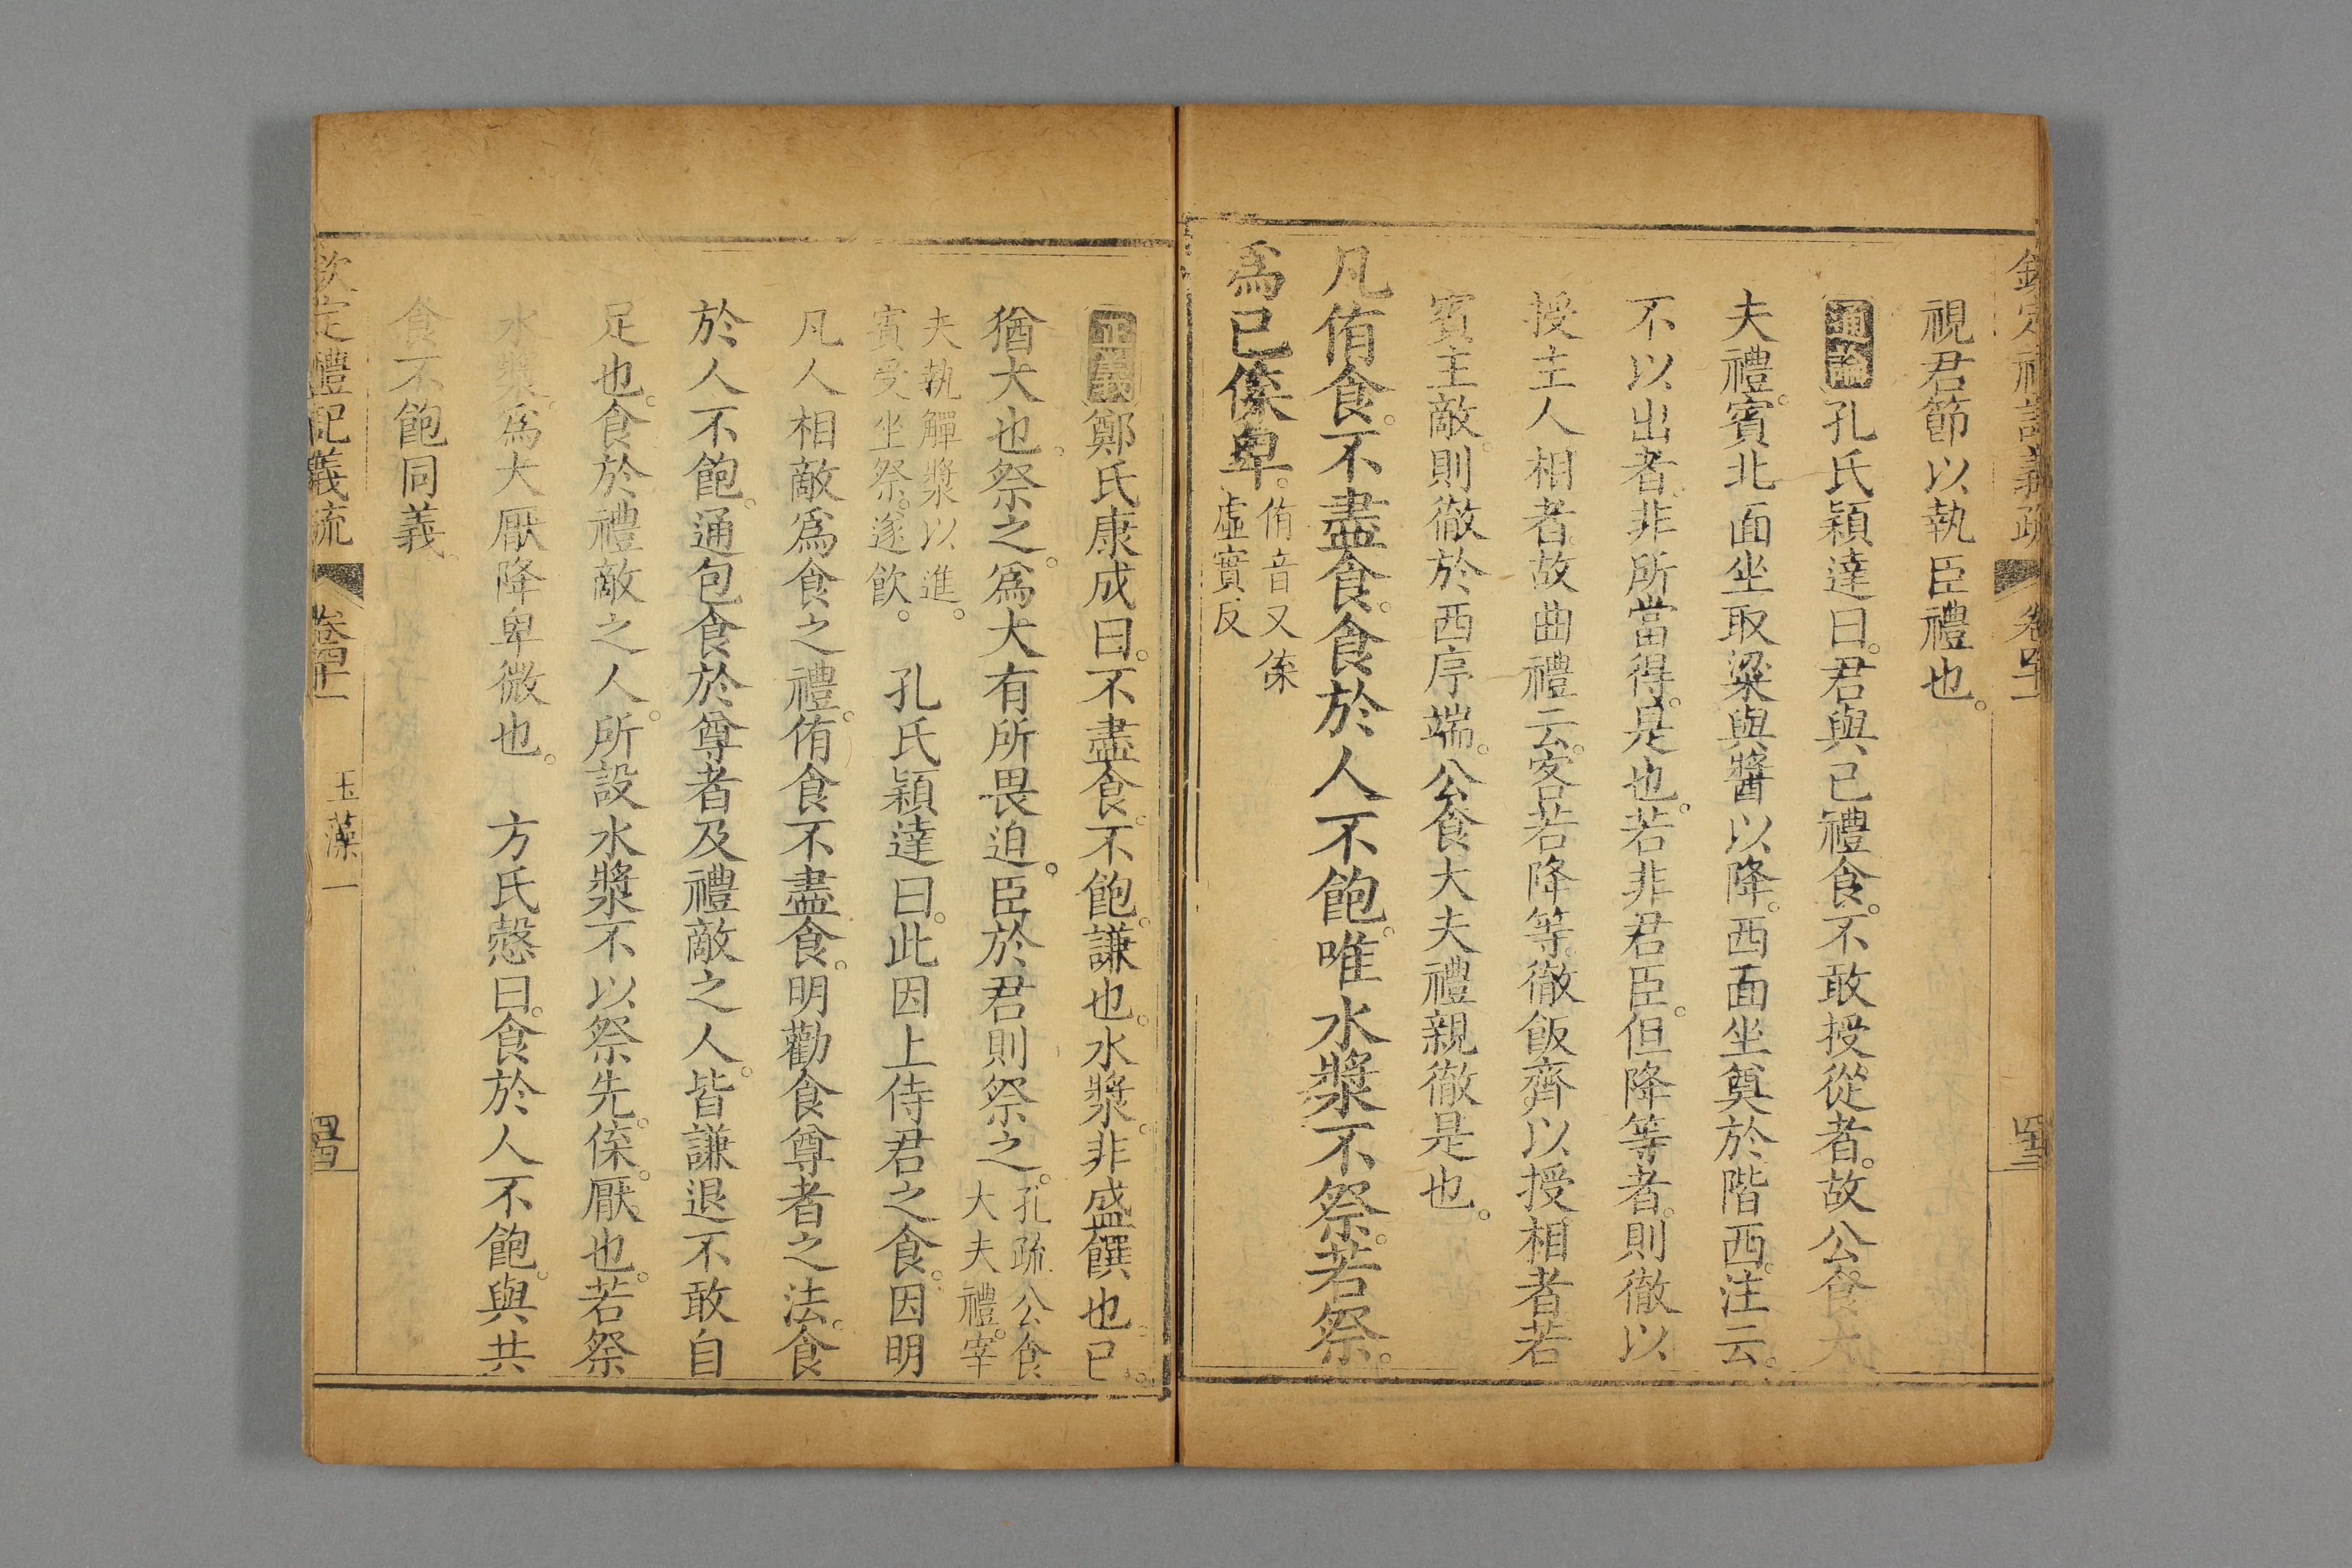 欽定禮記義疏 卷四十一
視君節以執臣禮也。
通論孔氏穎達曰。君與己禮食。不敢授從者。故公食大
夫禮。賓北面坐取粱與醬以降。西面坐奠於階西。注云。
不以出者。非所當得。是也。若非君臣。但降等者。則徹以
授主人相者。故曲禮云。客若降等。徹飯齊以授相者。若
賓主敵。則徹於西序端。公食大夫禮親徹是也。
凡侑食。不盡食。食於人不飽。唯水漿不祭。若祭。
爲已傂卑。侑音又傂
虛實反
正義鄭氏康成曰。不盡食。不飽。謙也。水漿。非盛饌也。已。
猶大也。祭之。爲大有所畏迫。臣於君則祭之。孔疏公食
大夫禮。宰
夫執觶漿以進。
賓受坐祭。遂飲。 孔氏穎達曰。此因上侍君之食。因明
凡人相敵爲食之禮。侑食不盡食。明勸食尊者之法。食
於人不飽。通包食於尊者及禮敵之人。皆謙退不敢自
足也。食於禮敵之人。所設水漿不以祭先。傂。厭也。若祭
水漿。爲大厭降卑微也。 方氏慤曰。食於人不飽。與共
食不飽同義。
欽定禮記義疏 卷四十一 玉藻一